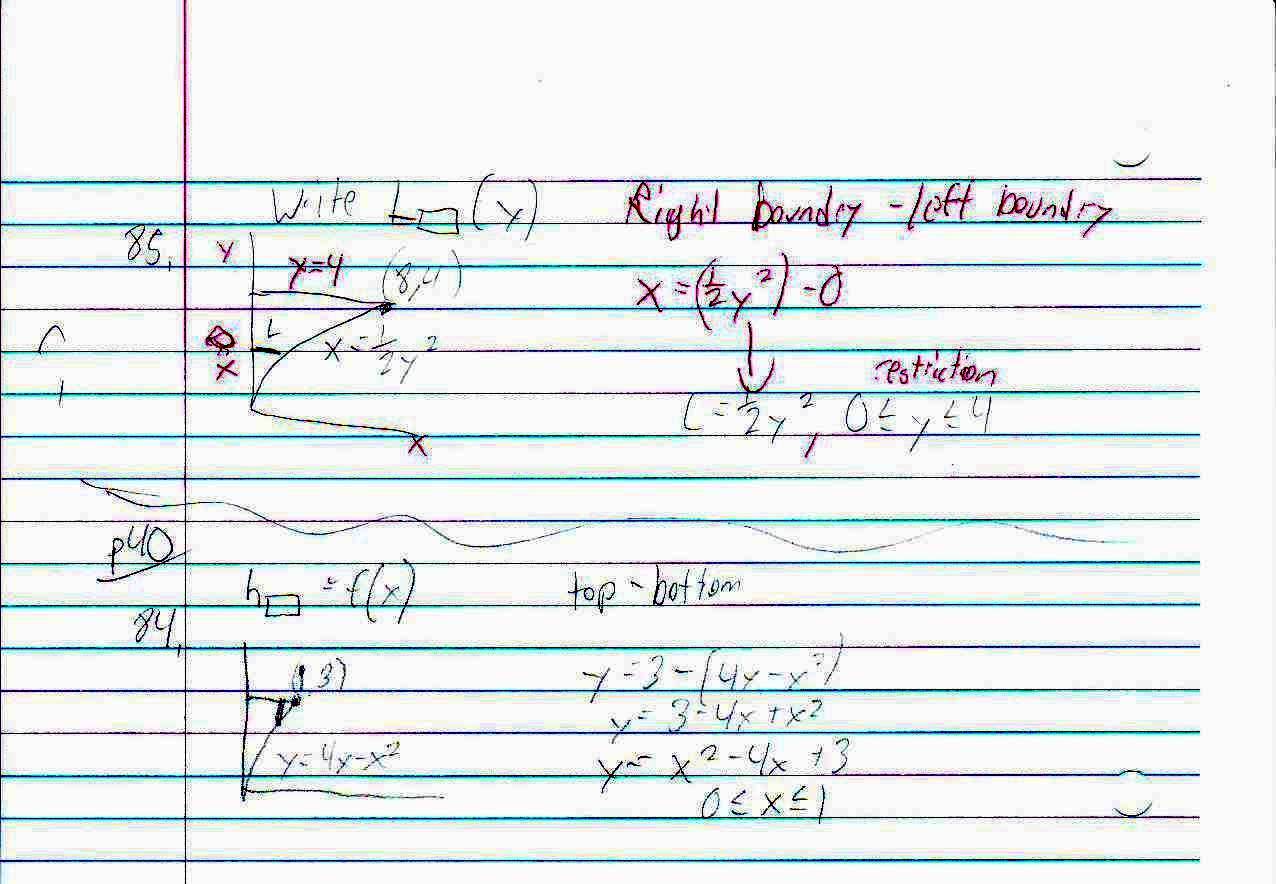 Write L▭(y) Right boundry - left boundry
85. y y=4 (8,4)
x = (1/2 y²) - 0
L x = 1/2 y²
x restriction
L = 1/2 y², 0 ≤ y ≤ 4
x
p40
h▭ = f(x) top - bottom
84.
(1,3) y = 3 - (4x - x²)
y = 3 - 4x + x²
y = 4x - x² y = x² - 4x + 3
0 ≤ x ≤ 1